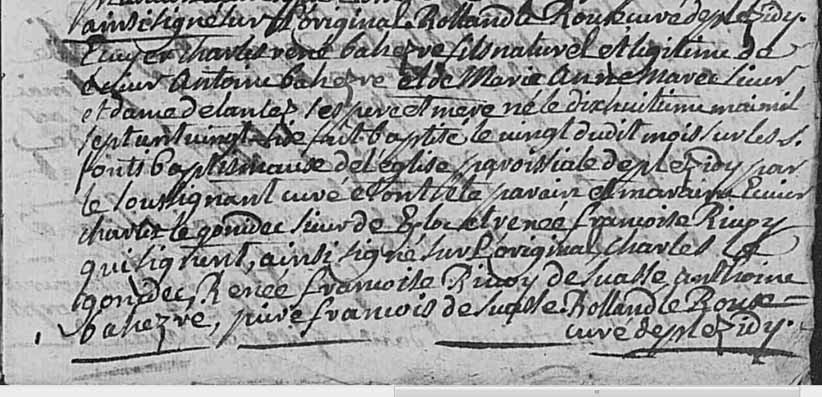 ainsi signé sur l'original Rolland le Roux curé de plezidy.
Ecuyer charles rené bahezre fils naturel et legitime de
Antoine bahezre et de Marie Anne Marec sieur
et dame de lanlez ses pere et mere né le dixhuitieme mai mil
sept cent vingt fut baptisé le vingt dudit mois sur les s.
fonts baptismaux de l'eglise paroissiale de plezidy par
le soussignant curé et ont été parain et maraine Ecuier
charles le gondec sieur de et renée francoise Rivoy
qui signent, ainsi signé sur l'original, charles le
gondec, Renée francoise Rivoy de suasse anthoine
bahezre, francois de suasse. Rolland le Roux
curé de plezidy.